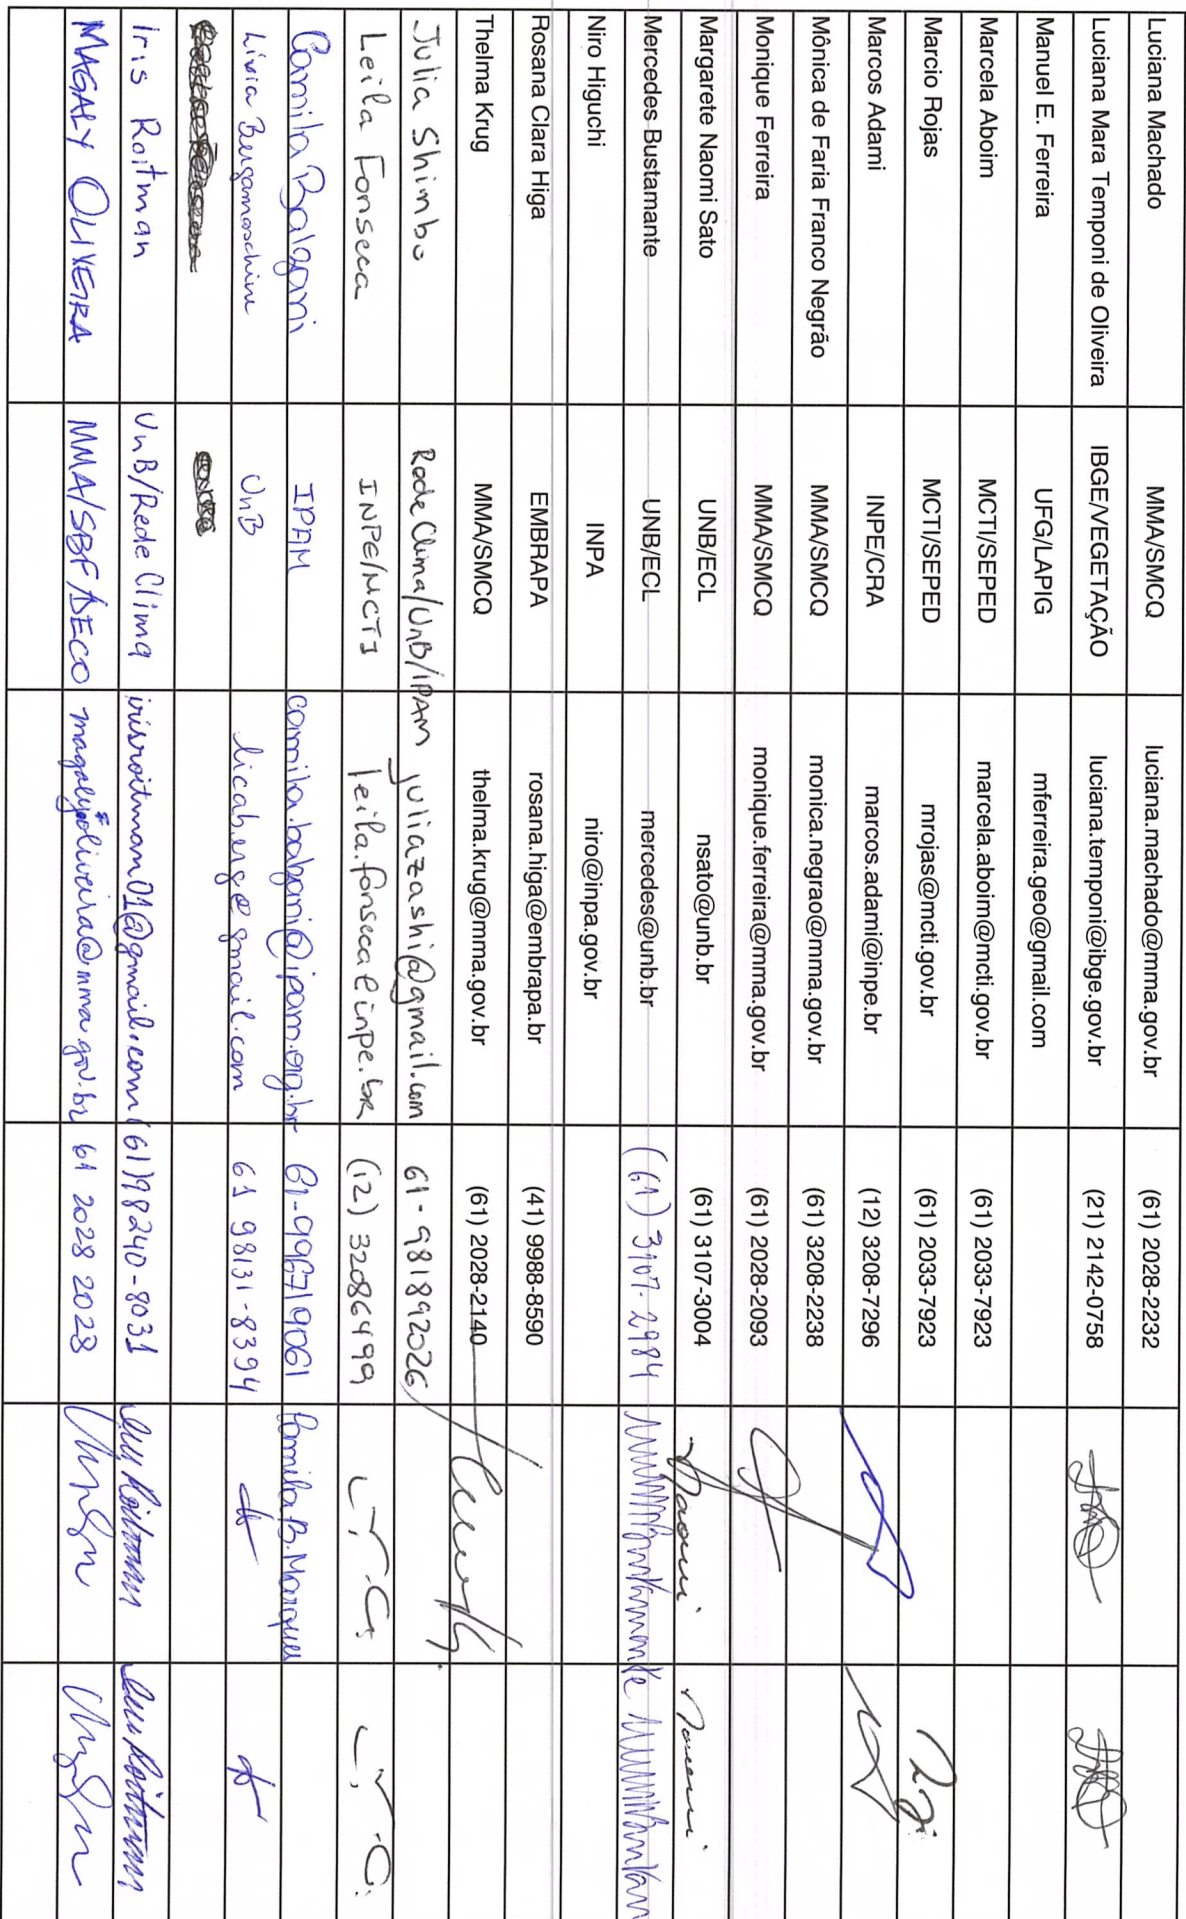 Luciana Machado MMA/SMCQ luciana.machado@mma.gov.br (61) 2028-2232
Luciana Mara Temponi de Oliveira IBGE/VEGETAÇÃO luciana.temponi@ibge.gov.br (21) 2142-0758
Manuel E. Ferreira UFG/LAPIG mferreira.geo@gmail.com
Marcela Aboim MCTI/SEPED marcela.aboim@mcti.gov.br (61) 2033-7923
Marcio Rojas MCTI/SEPED mrojas@mcti.gov.br (61) 2033-7923
Marcos Adami INPE/CRA marcos.adami@inpe.br (12) 3208-7296
Mônica de Faria Franco Negrão MMA/SMCQ monica.negrao@mma.gov.br (61) 3208-2238
Monique Ferreira MMA/SMCQ monique.ferreira@mma.gov.br (61) 2028-2093
Margarete Naomi Sato UNB/ECL nsato@unb.br (61) 3107-3004 Naomi Naomi
Mercedes Bustamante UNB/ECL mercedes@unb.br (61) 3107-2984
Niro Higuchi INPA niro@inpa.gov.br
Rosana Clara Higa EMBRAPA rosana.higa@embrapa.br (41) 9988-8590
Thelma Krug MMA/SMCQ thelma.krug@mma.gov.br (61) 2028-2140
Julia Shimbo Rede Clima/UnB/IPAM juliazashi@gmail.com 61-981892026
Leila Fonseca INPE/MCTI leila.fonseca@inpe.br (12) 32086499
Camila Balzani IPAM 61-996719061 Camila B. Marques
Livia Bergamaschine UnB licaberg@gmail.com 61 98131-8394
Iris Roitman UnB/Rede Clima irisroitman01@gmail.com (61)98240-8031 Iris Roitman Iris Roitman
MAGALY OLIVEIRA MMA/SBF/DECO magaly.oliveira@mma.gov.br 61 2028 2028